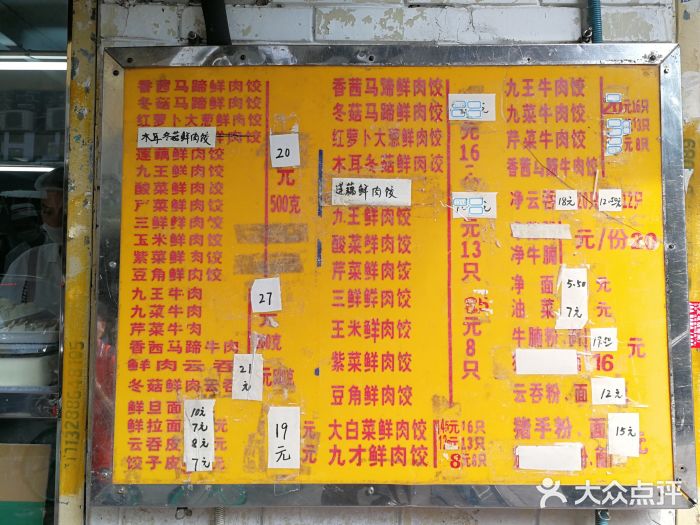 香茜马蹄鲜肉饺
冬菇马蹄鲜肉饺
红萝卜大葱鲜肉饺
木耳冬菇鲜肉饺
莲藕鲜肉饺
九王鲜肉饺
酸菜鲜肉饺
芹菜鲜肉饺
三鲜鲜肉饺
玉米鲜肉饺
紫菜鲜肉饺
豆角鲜肉饺
20
元
500克
九王牛肉
九菜牛肉
芹菜牛肉
香茜马蹄牛肉
27
元
鲜肉云吞
冬菇鲜肉云吞
21元
鲜旦面 10元
鲜拉面 7元
云吞皮 8元
饺子皮 7元
19元
香茜马蹄鲜肉饺
冬菇马蹄鲜肉饺
红萝卜大葱鲜肉饺
木耳冬菇鲜肉饺
莲藕鲜肉饺
九王鲜肉饺
酸菜鲜肉饺
芹菜鲜肉饺
三鲜鲜肉饺
玉米鲜肉饺
紫菜鲜肉饺
豆角鲜肉饺
元16
元13只
元8只
大白菜鲜肉饺
九才鲜肉饺
元16只
13只
8元8只
九王牛肉饺
九菜牛肉饺
芹菜牛肉饺
香茜马蹄牛肉饺
20元16只
13只
元8只
净云吞 18元 12只
净牛腩
元/份20
净面 5.50元
油菜 7元
牛腩粉.面
16元
云吞粉.面 12元
猪手粉.面 15元
17132886481195
大众点评